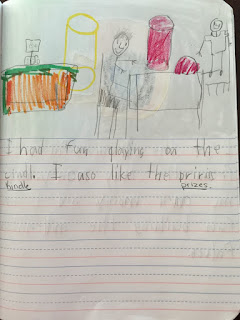 I had fun playing on the
I aso like the
kindle prizes.